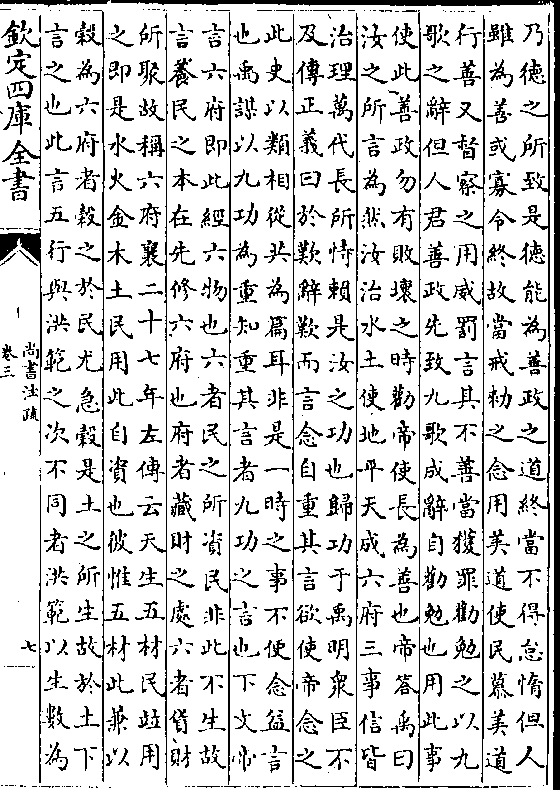 乃德之所致是德能為善政之道終當不得怠惰但人
雖為善或寡令終故當戒勑之念用美道使民慕美道
行善又督察之用威罰言其不善當獲罪勸勉之以九
歌之辭但人君善政先致九歌成辭自勸勉也用此事
使此善政勿有敗壞之時勸帝使長為善也帝答禹曰
汝之所言為然汝治水土使地平天成六府三事信皆
治理萬代長所恃賴是汝之功也歸功于禹明衆臣不
及傳正義曰於歎辭歎而言念自重其言欲使帝念之
此史以類相從共為篇耳非是一時之事不使念益言
也禹謀以九功為重知重其言者九功之言也下文帝
言六府即此經六物也六者民之所資民非此不生故
言養民之本在先修六府也府者藏財之處六者貨財
所聚故稱六府襄二十七年左傳云天生五材民並用
之即是水火金木土民用此自資也彼惟五材此兼以
穀為六府者穀之於民尤急穀是土之所生故於土下
言之也此言五行與洪範之次不同者洪範以生數為
欽定四庫全書
尚書注疏
卷三
七